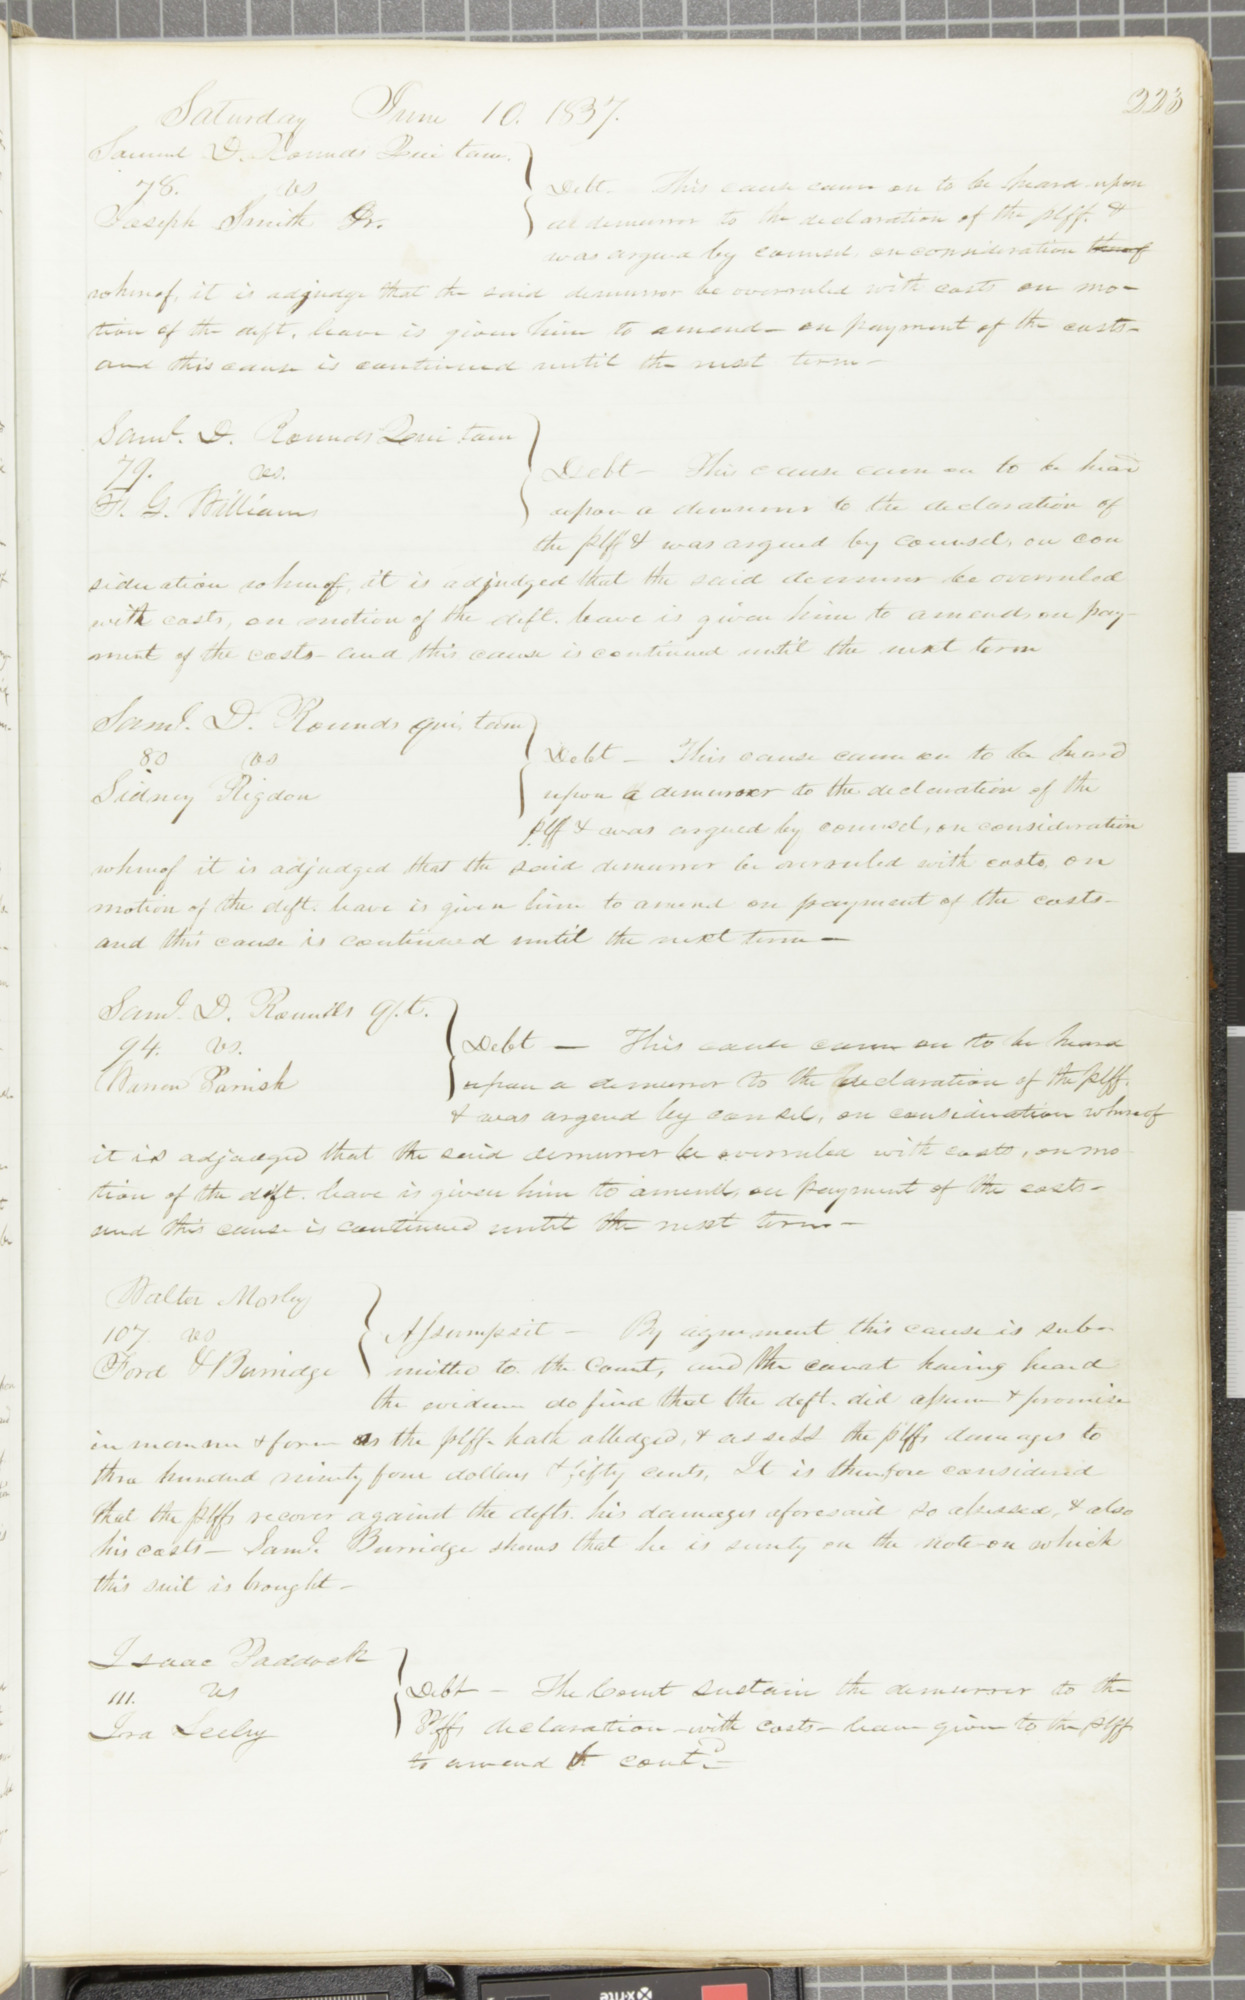 223
Saturday June 10. 1837.
Samuel D. Rounds Qui tam.
78. vs
Joseph Smith Jr.
Debt – This cause came on to be heard upon
a demurror to the declaration of the plff. &
was argued by counsel, on consideration thereof
whereof, it is adjudge that the said demurror be overruled with costs on mo-
tion of the deft. leave is given him to amend – on payment of the costs –
and this cause is continued until the next term –
Saml. D. Rounds Qui tam
79. vs.
F. G. Williams
Debt – This cause came on to be heard
upon a demurror to the declaration of
the plff & was argued by counsel, on con
sideration whereof, it is adjudged that the said demurror be overruled
with costs, on motion of the deft. leave is given him to amend, on pay-
ment of the costs – and this cause is continued until the next term
Saml. D. Rounds qui tam
80 vs
Sidney Rigdon
Debt – This cause came on to be heard
upon a demurror to the declaration of the
plff & was argued by counsel, on consideration
whereof it is adjudged that the said demurror be overruled with costs, on
motion of the deft. leave is given him to amend on payment of the costs –
and this cause is continued until the next term –
Saml. D. Rounds q.t.
94. vs.
Warren Parrish
Debt – This cause came on to be heard
upon a demurror to the declaration of the plff.
& was argued by consel, on consideration whereof
it is adjudged that the said demurrer be overruled with costs, on mo
tion of the deft. leave is given him to amend, on payment of the costs –
and this cause is continued until the next term –
Walter Morley
107. vs
Ford & Burridge
Assumpsit – By agreement this cause is sub-
mitted to the Court, and the court having heard
the evidence do find that the deft. did assume & promise
in manner & form as the plff. hath alledged, & assess the plffs damages to
three hundred ninety four dollars & fifty cents, It is therefore considered
that the plffs recover against the defts. his damages aforesaid so assessed, & also
his costs – Saml. Burridge shows that he is surety on the note on which
this suit is brought –
Isaac Paddock
111. vs
Ira Seeley
Debt – The Court sustain the demurrer to the
Plffs declaration – with costs – leave given to the plff
to amend & contd. –
x-rite